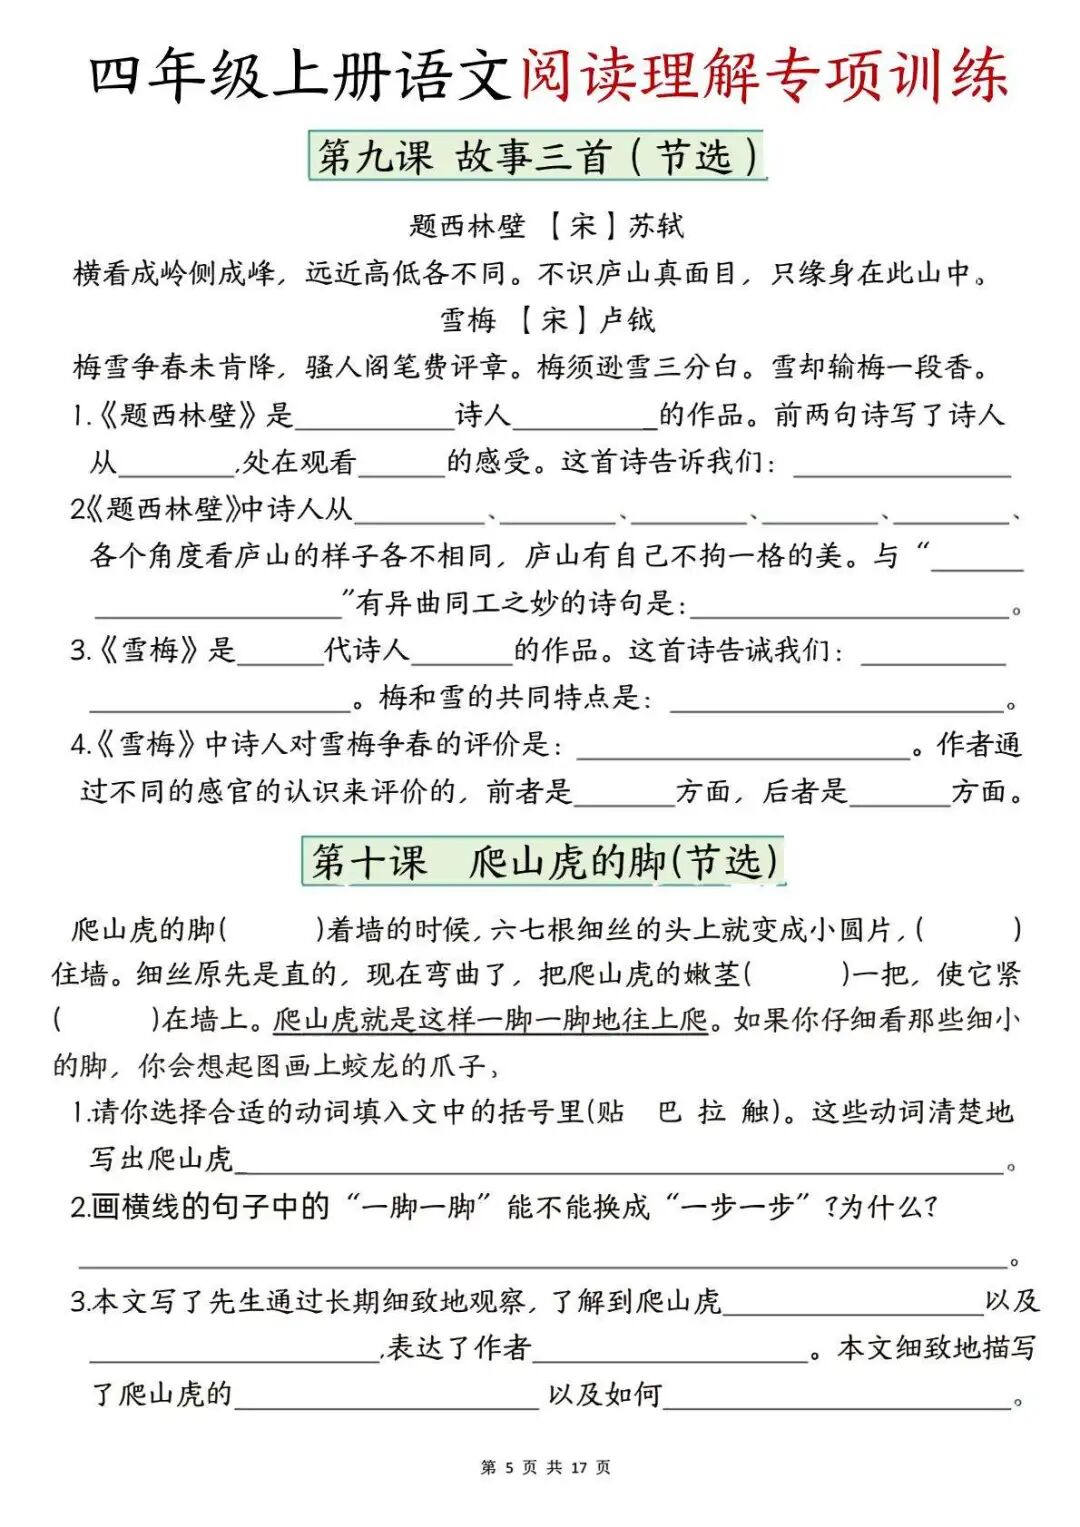 四年级上册语文阅读理解专项训练
第九课 故事三首（节选）
题西林壁 【宋】苏轼
横看成岭侧成峰，远近高低各不同。不识庐山真面目，只缘身在此山中。
雪梅 【宋】卢钺
梅雪争春未肯降，骚人阁笔费评章。梅须逊雪三分白。雪却输梅一段香。
1.《题西林壁》是__________诗人__________的作品。前两句诗写了诗人
从________,处在观看______的感受。这首诗告诉我们：______________
2《题西林壁》中诗人从_________、________、________、________、________、
各个角度看庐山的样子各不相同，庐山有自己不拘一格的美。与“______
________________”有异曲同工之妙的诗句是:____________________。
3.《雪梅》是______代诗人_______的作品。这首诗告诫我们：__________
__________________。梅和雪的共同特点是：______________________。
4.《雪梅》中诗人对雪梅争春的评价是：______________________。作者通
过不同的感官的认识来评价的，前者是_______方面，后者是_______方面。
第十课 爬山虎的脚(节选)
爬山虎的脚(　　)着墙的时候,六七根细丝的头上就变成小圆片，(　　)
住墙。细丝原先是直的，现在弯曲了，把爬山虎的嫩茎(　　)一把，使它紧
(　　)在墙上。爬山虎就是这样一脚一脚地往上爬。如果你仔细看那些细小
的脚，你会想起图画上蛟龙的爪子。
1.请你选择合适的动词填入文中的括号里(贴 巴 拉 触)。这些动词清楚地
写出爬山虎__________________________________________________。
2.画横线的句子中的“一脚一脚”能不能换成“一步一步”?为什么?
____________________________________________________________。
3.本文写了先生通过长期细致地观察，了解到爬山虎__________________以及
____________________,表达了作者___________________。本文细致地描写
了爬山虎的_____________________以及如何________________________。
第 5 页 共 17 页